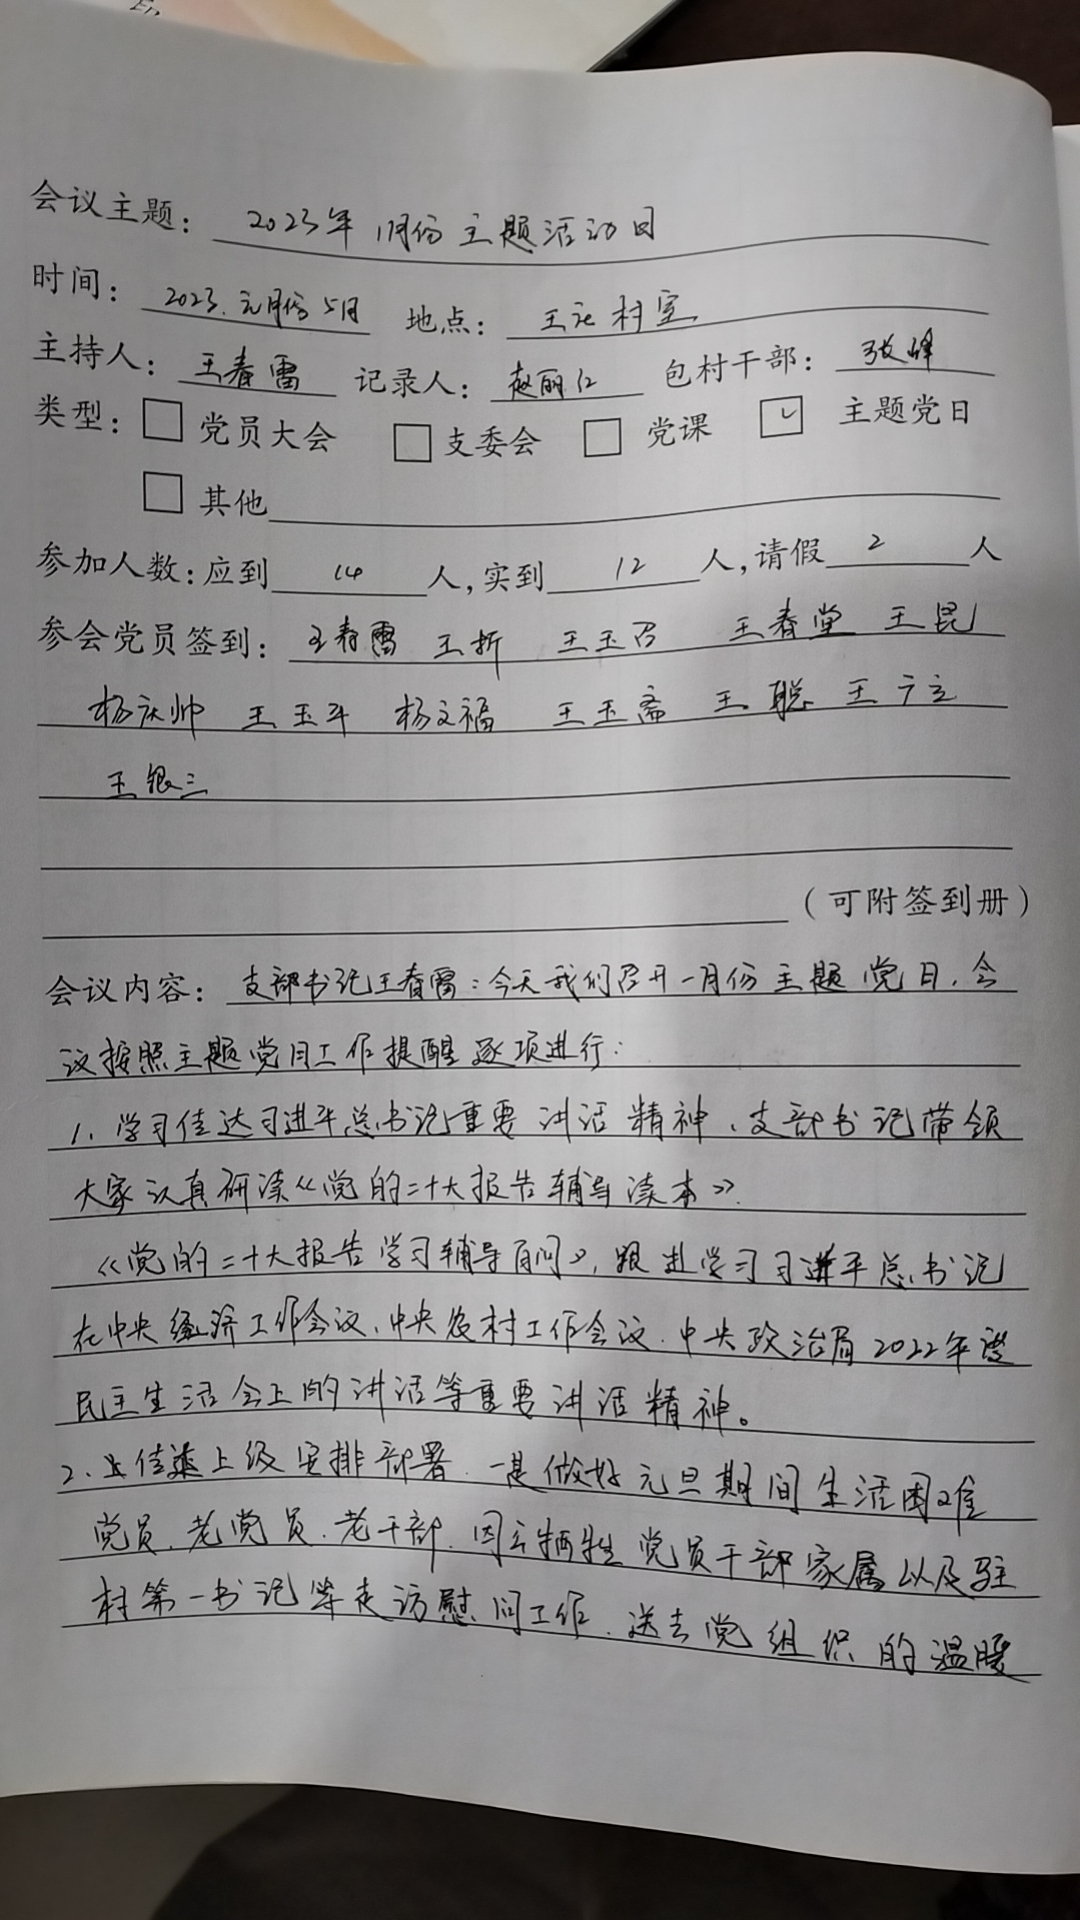 会议主题：2023年1月份主题活动日
时间：2023.元月份5日 地点：王 村室
主持人：王春雷 记录人：赵丽红 包村干部：张峰
类型：□党员大会 □支委会 □党课 ☑主题党日
□其他
参加人数：应到 14 人，实到 12 人，请假 2 人
参会党员签到：王春雷 王折 王玉召 王春堂 王昆
杨庆帅 王玉平 杨文福 王玉斋 王聪 王广立
王银三
（可附签到册）
会议内容：支部书记王春雷：今天我们召开一月份主题党日，会
议按照主题党日工作提醒逐项进行：
1、学习传达习近平总书记重要讲话精神、支部书记带领
大家认真研读《党的二十大报告辅导读本》.
《党的二十大报告学习辅导百问》，跟进学习习进平总书记
在中央经济工作会议、中央农村工作会议、中央政治局2022年度
民主生活会上的讲话等重要讲话精神。
2、传达上级安排部署、一是做好元旦期间生活困难
党员、老党员、老干部、因公牺牲党员干部家属以及驻
村第一书记等走访慰问工作、送去党组织的温暖